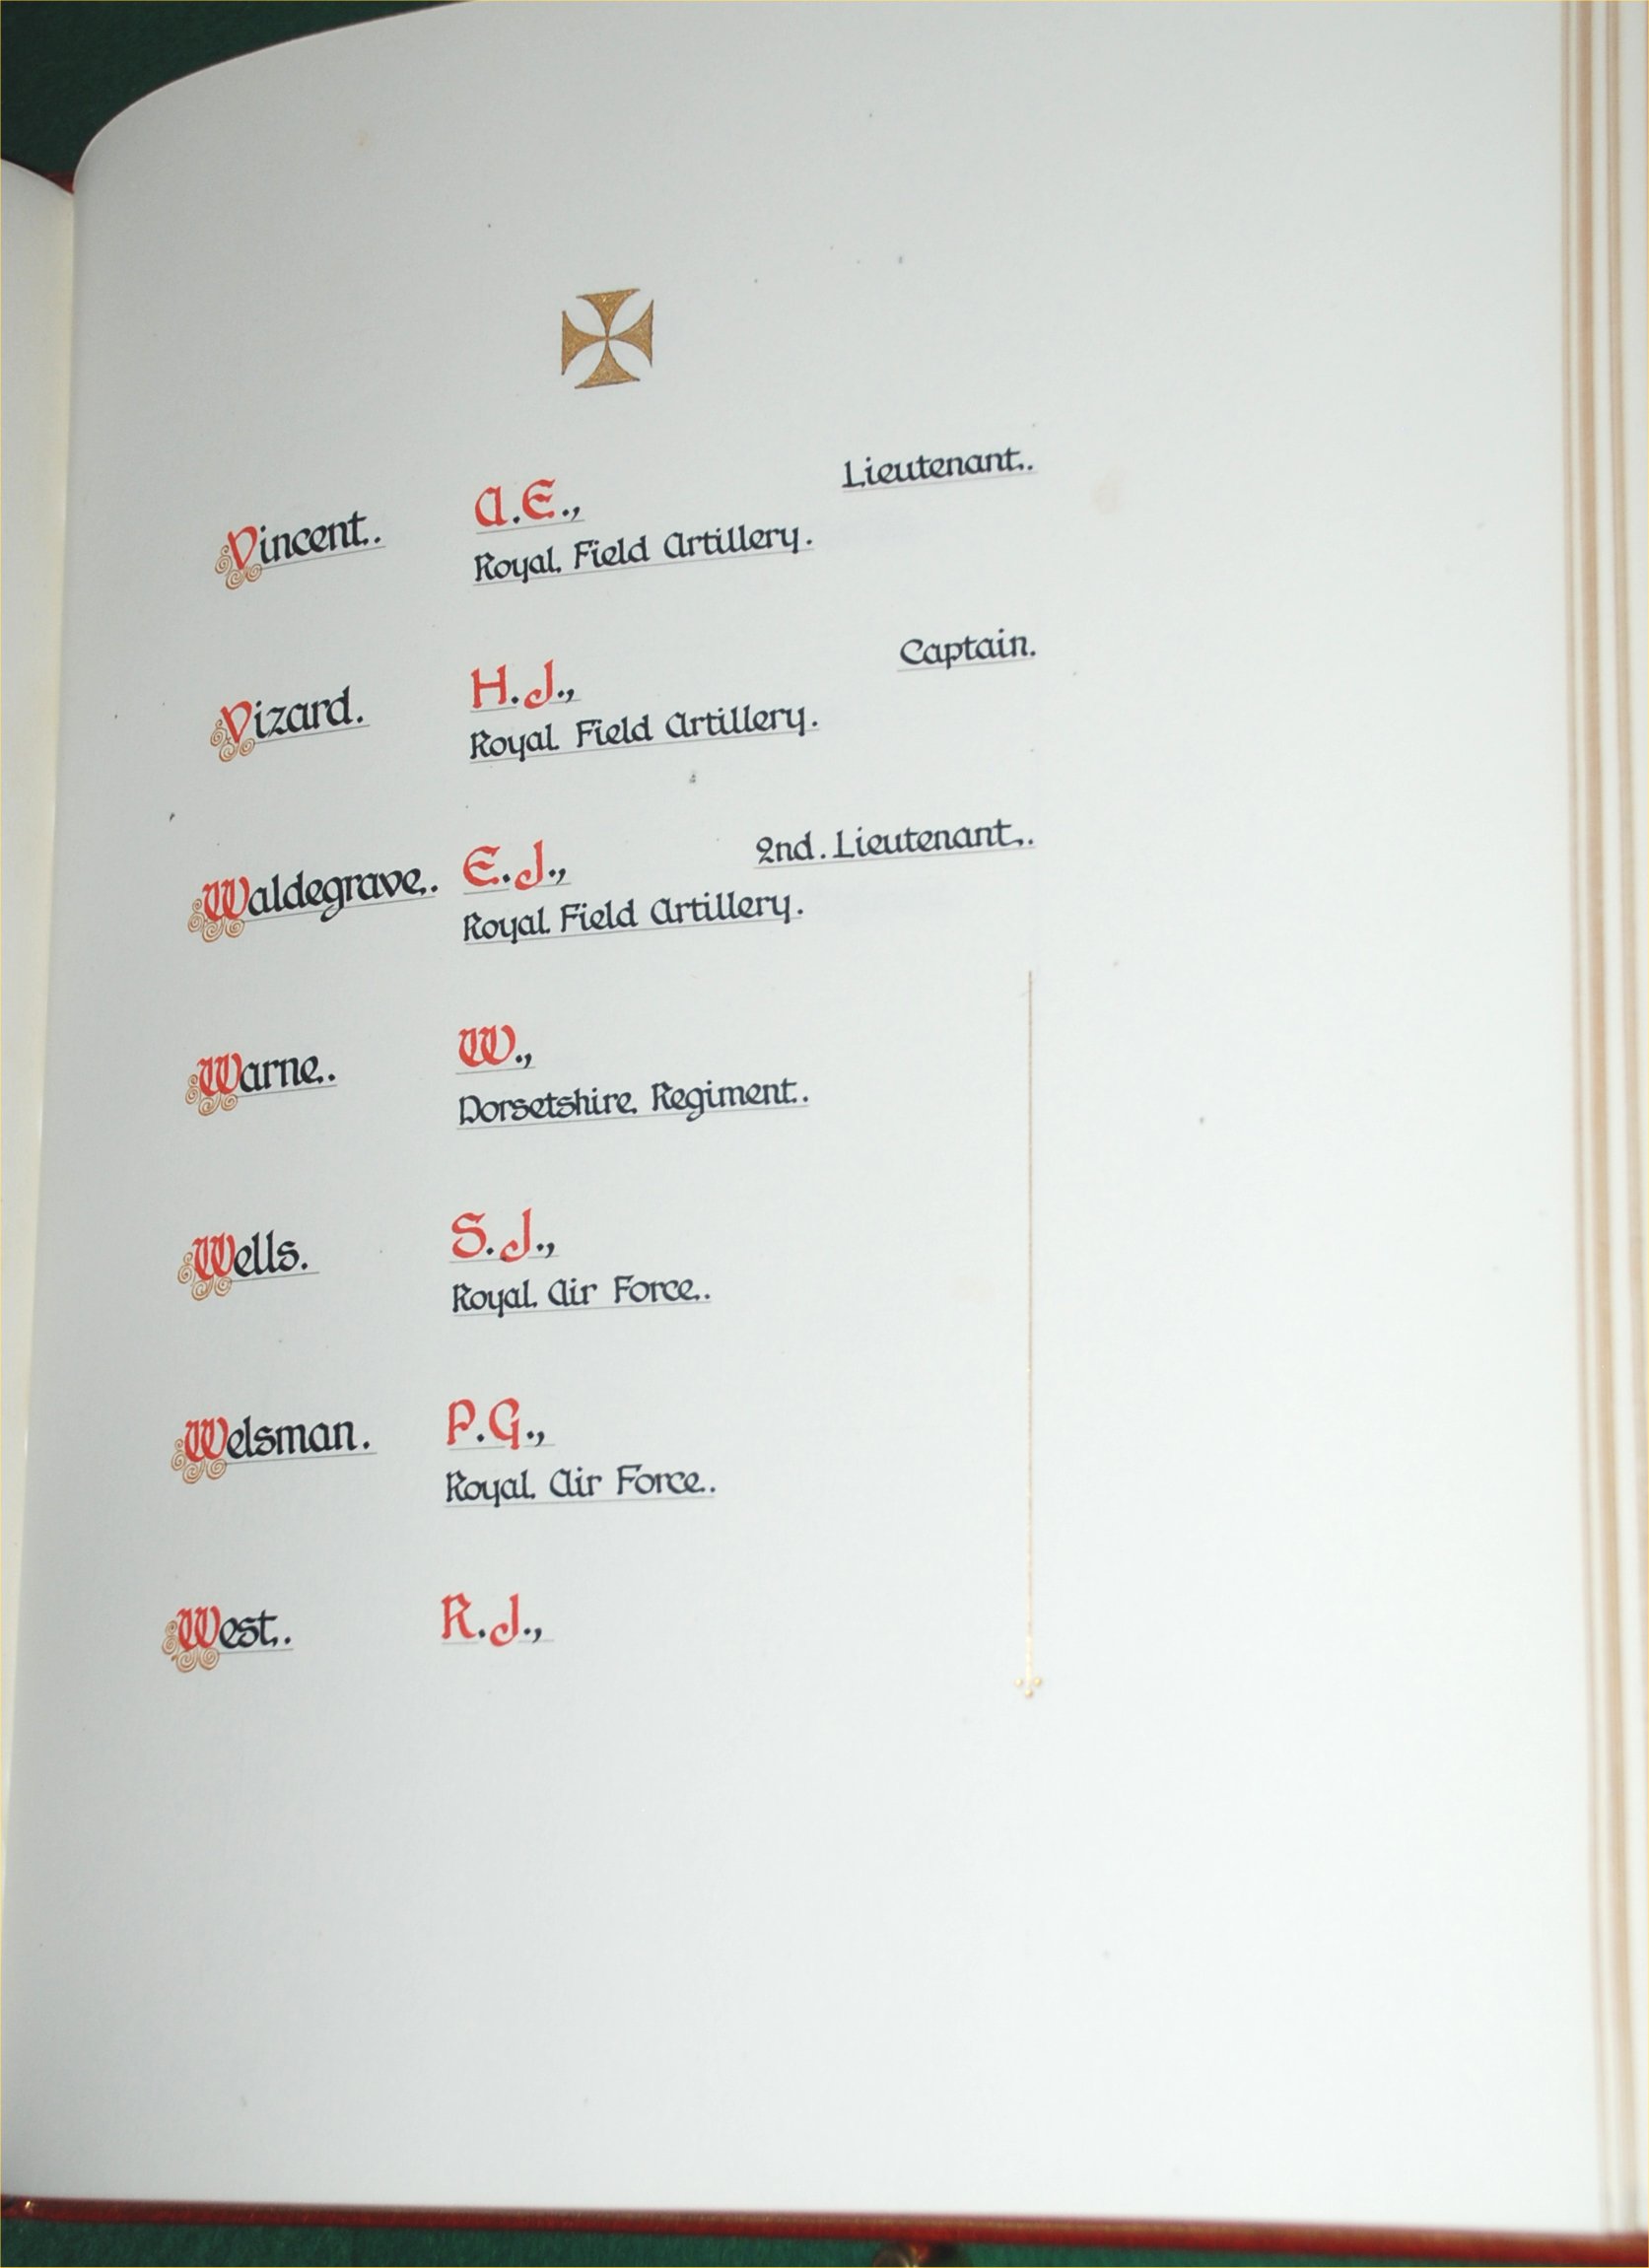 Vincent. A.E., Lieutenant.
Royal Field Artillery.
Vizard. H.J., Captain.
Royal Field Artillery.
Waldegrave. E.J., 2nd. Lieutenant.
Royal Field Artillery.
Warne. W.,
Dorsetshire Regiment.
Wells. S.J.,
Royal Air Force.
Welsman. P.G.,
Royal Air Force.
West. R.J.,